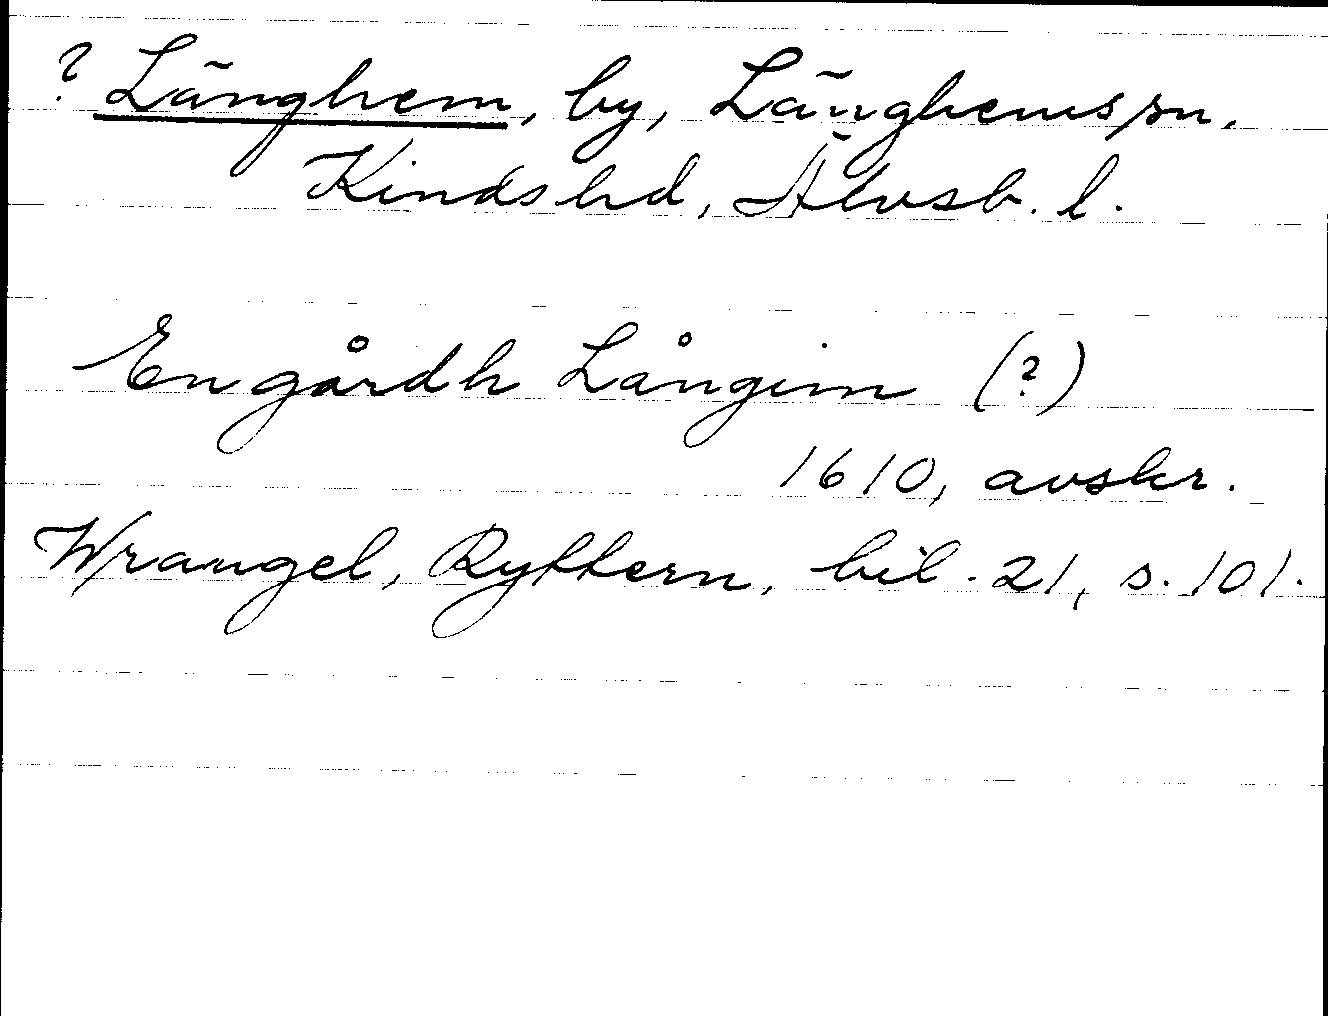 ? Länghem, by, Länghems sn.
Kinds hd, Älvsb. l.
En gårdh Långim (?)
1610, avskr.
Wrangel, Ryttern, bil. 21, s. 101.